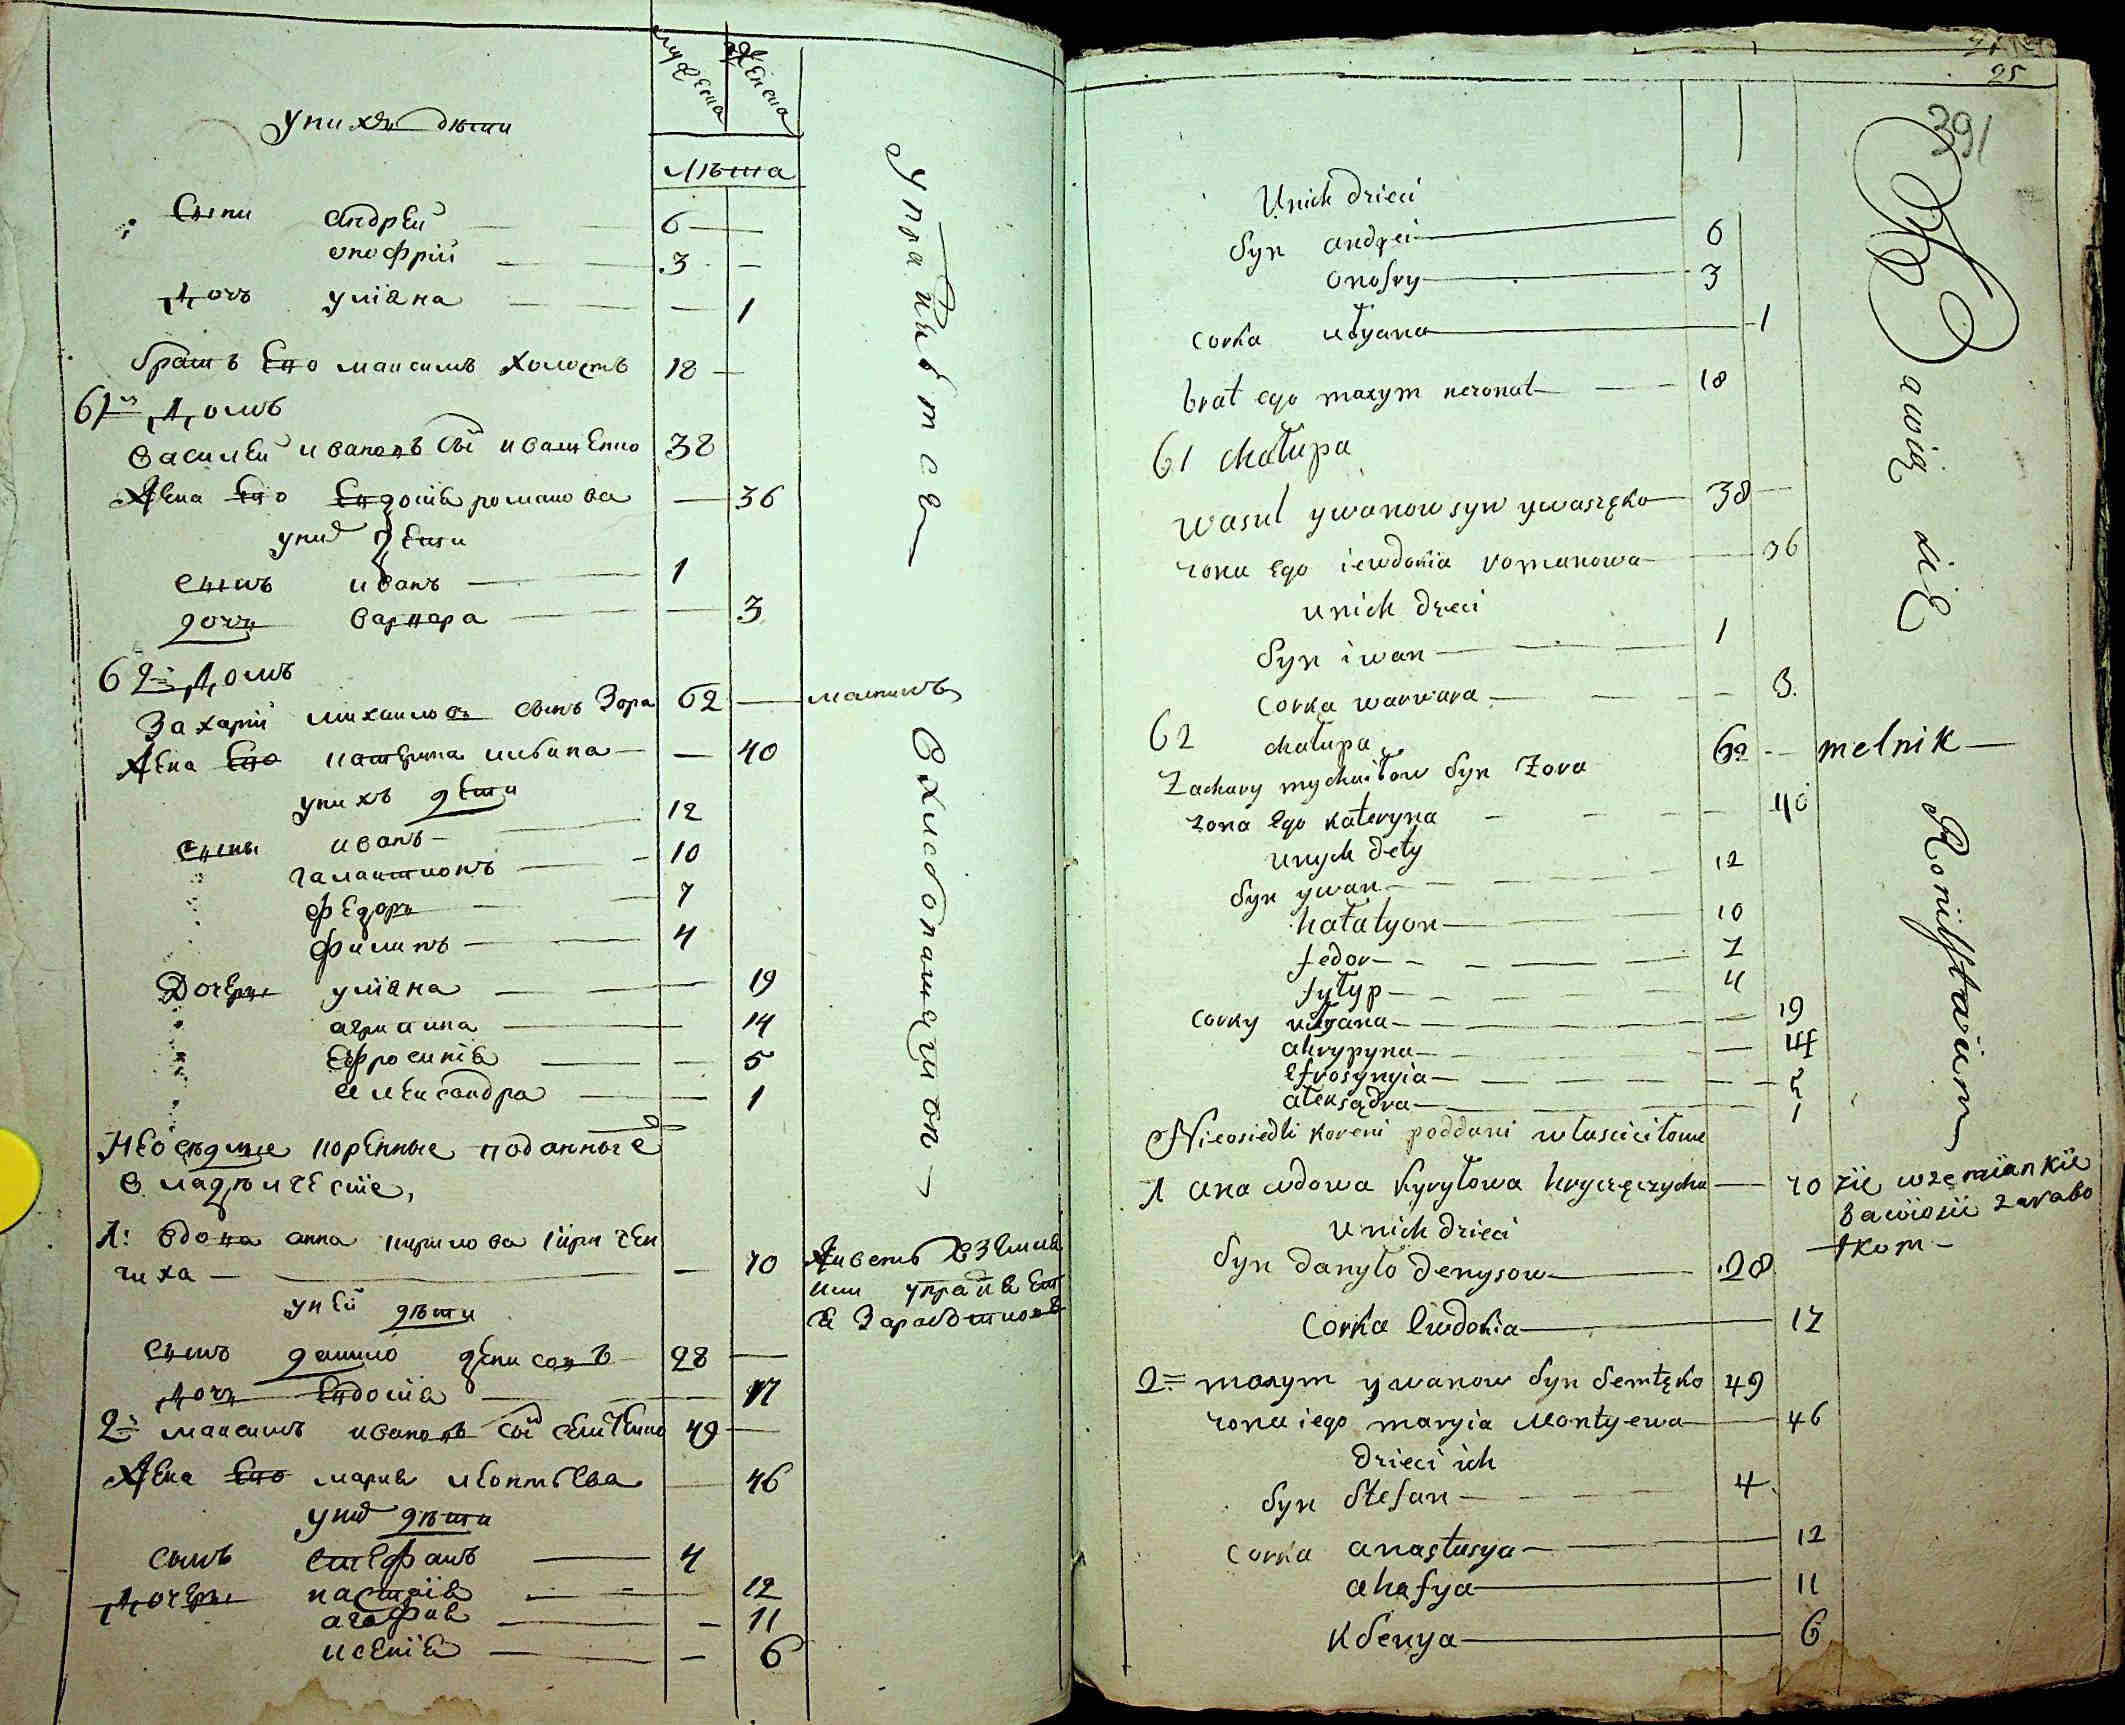 мужеска женска
у них дѣти
лѣта
Сыни андрей 6
онофрій 3
дочь уліяна 1
братъ Его максимъ холостъ 18
61й домъ
василей ивановъ сы иващенко 38
жена Его Евдокія романова 36
у них дети
сынъ иванъ 1
дочь варвара 3
62й домъ
Захарій михаиловъ сынъ Зора 62 мелникъ
жена Его катерина 40
у нихъ дети
сыны иванъ 12
галактионъ 10
федоръ 7
филипъ 4
Дочери уліяна 19
агрипина 14
Ефросинія 5
александра 1
Неоседлие коренные поданные
владелческіе,
1: вдова анна кирилова
чиха 70 живетъ в землян
ки упражняет
ся Заработком
у ней дѣти
сынъ данило денисовъ 28
дочь Евдокія 17
2й максимъ ивановъ сы семченко 49
жена Его марія леонтьева 46
у них дѣти
сынъ стефанъ 4
дочери настасія 12
агафия 11
ксенія 6
упражняются
в хлебопашестве
25
391
U nich dzieci
Syn andrei 6
onofry 3
corka ułyana 1
brat ego maxym nezonat 18
61 chałupa
wasul ywanow syn ywaszęko 38
zona ego iewdokia romanowa 36
u nich dzeci
Syn iwan 1
corka warwara 3.
62 chałupa
Zachary mychaiłow Syn Zora 62 melnik
zona ego kateryna 40
u nych dety
Syn ywan 12
hałatyon 10
fedor 7
fyłyp 4
corky ułyana 19
ahrypyna 14
efrosynyia 5
ałexsądra 1
Nieosiedli koreni poddani własciciłowe
1 ana wdowa kyryłowa hryczęczycha 70 zÿe w zemiankie
bawiosie zarabo
tkom
u nich dzieci
Syn danyło denysow 28
corka Ewdokia 17
2= maxym ywanow Syn Semłęko 49
zona iego maryia leontyewa 46
dzieci ich
Syn Stefan 4
corka anastasya 12
ahafya 11
ksenya 6
Bawią siE
Ronisstaium